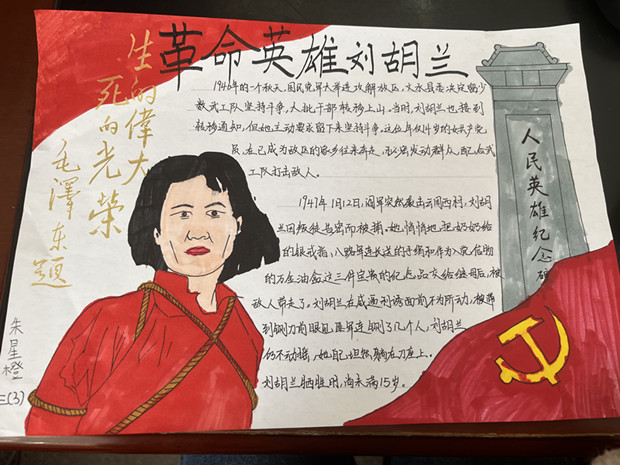 革命英雄刘胡兰
生的偉大
死的光榮
毛澤东題
1946年的一个秋天,国民党军大举进攻解放区,文水县委决定留少
数武工队坚持斗争,大批干部转移上山。当时,刘胡兰也接到
转移通知,但她主动要求留下来坚持斗争。这位年仅14岁的女共产党
员,在已成为敌区的家乡往来奔走,秘密发动群众,配合武
工队打击敌人。
1947年1月12日,阎军突然袭击云周西村,刘胡
兰因叛徒告密而被捕。她悄悄地把奶奶给
的银戒指、八路军连长送的手绢和作为入党信物
的万金油盒这三件宝贵的纪念品交给继母后,被
敌人带去了。刘胡兰在威逼利诱面前不为所动,被带
到铡刀前眼见匪军连铡了几个人,刘胡兰
仍不动摇,她
坦然躺在刀座上。
刘胡兰牺牲时,尚未满15岁。
人民英雄纪念碑
朱星橙
三(3)